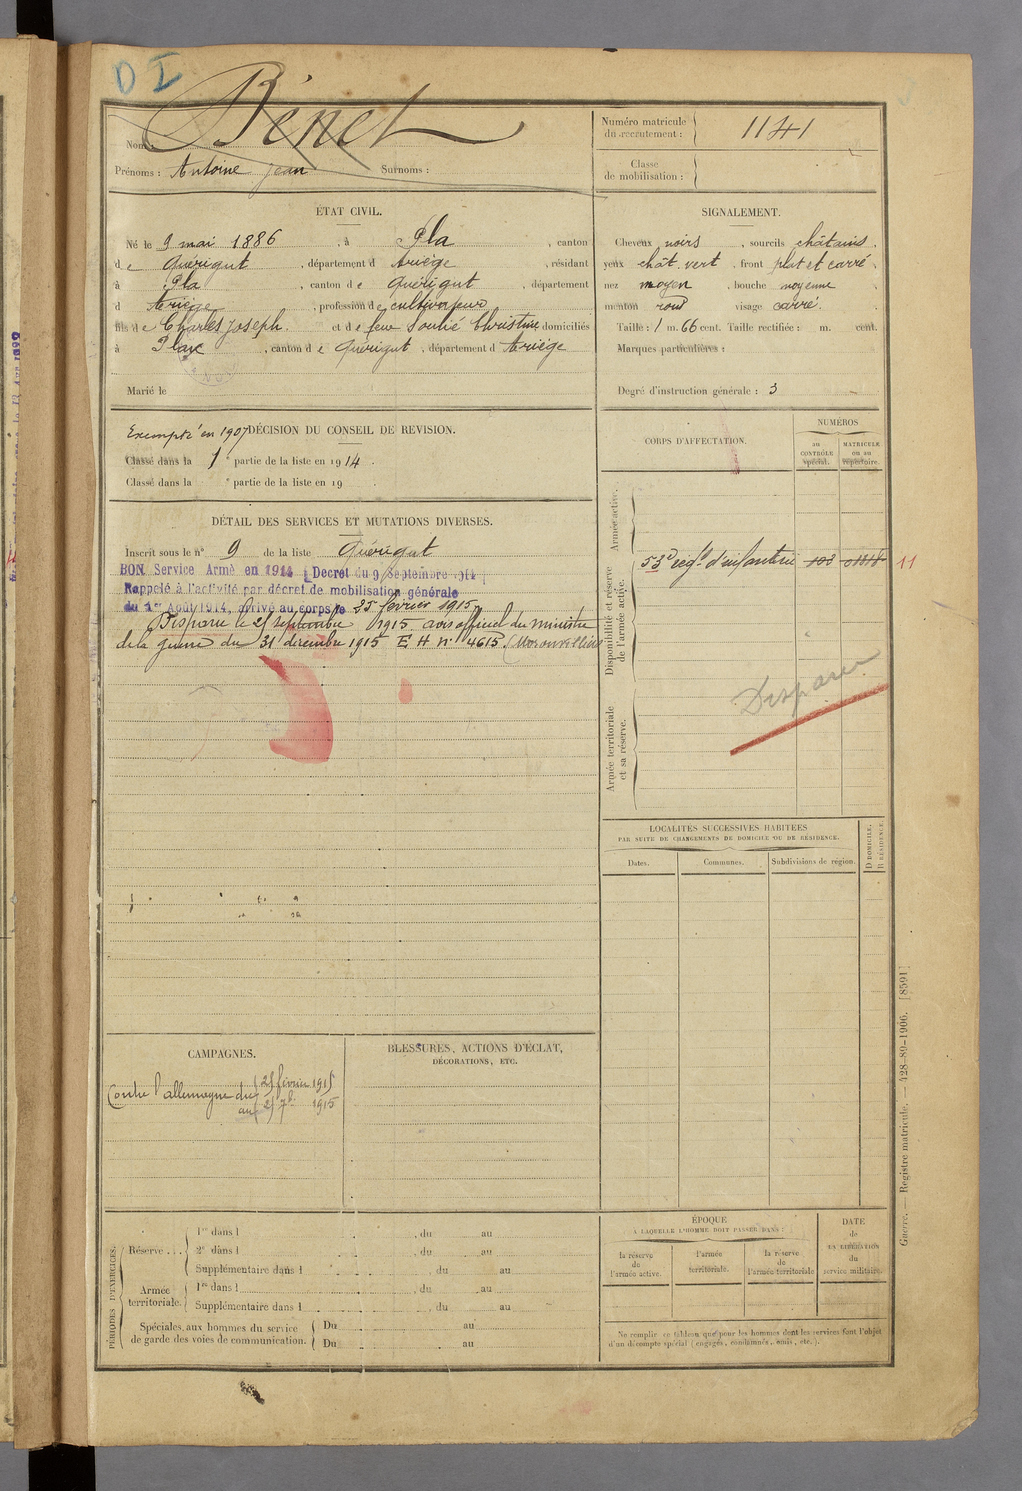 D I
Nom : Bénet
Prénoms : Antoine Jean Surnoms :
Numéro matricule
du recrutement : 1141
Classe
de mobilisation :
ÉTAT CIVIL.
Né le 9 mai 1886, à Pla, canton
de Quérigut, département d Ariège, résidant
à Pla, canton de Quérigut, département
d Ariège, profession de cultivateur
fils de Charles Joseph. et de feu Soulié Christine domiciliés
à Pla, canton de Quérigut, département d Ariège
Marié le
SIGNALEMENT.
Cheveux noirs, sourcils châtains.
yeux chât. vert, front plat et carré,
nez moyen, bouche moyenne
menton rond visage carré.
Taille : 1 m. 66 cent. Taille rectifiée : m. cent.
Marques particulières :
Degré d'instruction générale : 3
Exempté en 1907 DÉCISION DU CONSEIL DE REVISION.
Classé dans la 1e partie de la liste en 1914.
Classé dans la e partie de la liste en 19
DÉTAIL DES SERVICES ET MUTATIONS DIVERSES.
Inscrit sous le n° 9 de la liste Quérigut
BON Service Armé en 1914 (Décret du 9 Septembre 1914)
Rappelé à l'activité par décret de mobilisation générale
du 1er Août 1914, arrivé au corps le 25 février 1915.
Disparu le 25 septembre 1915 avis officiel du ministre
de la guerre du 31 décembre 1915 E H n° 4615.
CORPS D'AFFECTATION.
NUMÉROS
au
CONTRÔLE
spécial.
MATRICULE
ou au
répertoire.
Armée active.
Disponibilité et réserve
de l'armée active.
53e régt d'infanterie 103 11
Disparu
Armée territoriale
et sa réserve.
LOCALITÉS SUCCESSIVES HABITÉES
PAR SUITE DE CHANGEMENTS DE DOMICILE OU DE RÉSIDENCE.
Dates.
Communes.
Subdivisions de région.
D DOMICILE.
R RÉSIDENCE.
CAMPAGNES.
Contre l'allemagne du 25 février 1915
au 25 7bre 1915
BLESSURES, ACTIONS D'ÉCLAT,
DÉCORATIONS, ETC.
PÉRIODES D'EXERCICES.
Réserve . . .
1re dans l , du au
2e dans l , du au
Supplémentaire dans l , du au
Armée
territoriale.
1re dans l , du au
Supplémentaire dans l , du au
Spéciales aux hommes du service
de garde des voies de communication.
Du au
Du au
ÉPOQUE
À LAQUELLE L'HOMME DOIT PASSER DANS :
la réserve
de
l'armée active.
l'armée
territoriale.
la réserve
de
l'armée territoriale
DATE
de
LA LIBÉRATION
du
service militaire.
Ne remplir ce tableau que pour les hommes dont les services font l'objet
d'un décompte spécial (engagés, condamnés, omis, etc.).
Guerre. — Registre matricule. — 428-89-1906. [8591]